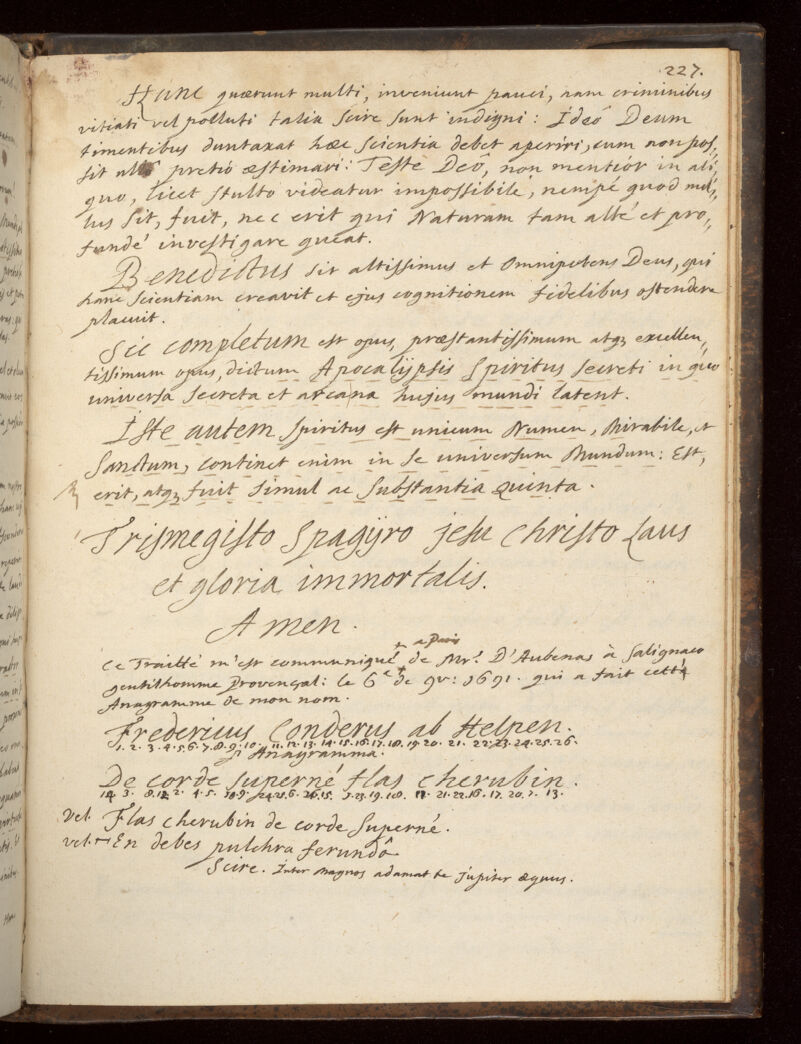 227.
Hanc quærunt multi, inveniunt pauci, nam criminibus
vitiati vel polluti talia scire sunt indigni: Ideô Deum
timentibus duntaxat hæc scientia debet aperiri, cum non pos,,
sit pretiô æstimari: Teste Deô, non mentior in ali,,
quo, licet stulto videatur impossibile, nempè quod nul,,
lus sit, fuit, nec erit qui Naturam tam altè et pro,,
fundè investigare queat.
Benedictus sit altissimus et Omnipotens Deus, qui
hanc Scientiam creavit et ejus cognitionem fidelibus ostendere
placuit.
Sic completum est opus, præstantissimum atqȝ excellen,,
tissimum opus, dictum Apocalÿpsis Spiritus secreti in quo
universa secreta et arcana hujus mundi latent.
Iste autem spiritus est unicum Numen, Mirabile, et
Sanctum, continet enim in se universum Mundum: Est,
erit, atqȝ fuit simul ac Substantia Quinta.
Trismegisto Spagÿro jesu Christo Laus
et gloria immortalis.
Amen.
a Paris
Ce Traitté m'est communiqué + de Mr. D'Aubenas à Salignaco
gentilhomme Provençal: le 6e de 9v: 1691. qui a fait cette
Anagramme de mon nom.
Fredericus Conderus ab Helpen.
1. 2. 3. 4. 5. 6. 7. 8. 9. 10. 11. 12. 13. 14. 15. 16. 17. 18. 19. 20. 21. 22. 23. 24. 25. 26.
Anagramma.
De corde supernè flas cherubin.
Vel. Flas cherubin de corde supernè.
vel. En debes pulchra ferundô
Scire. Inter Magnos adamat te jupiter æquus.